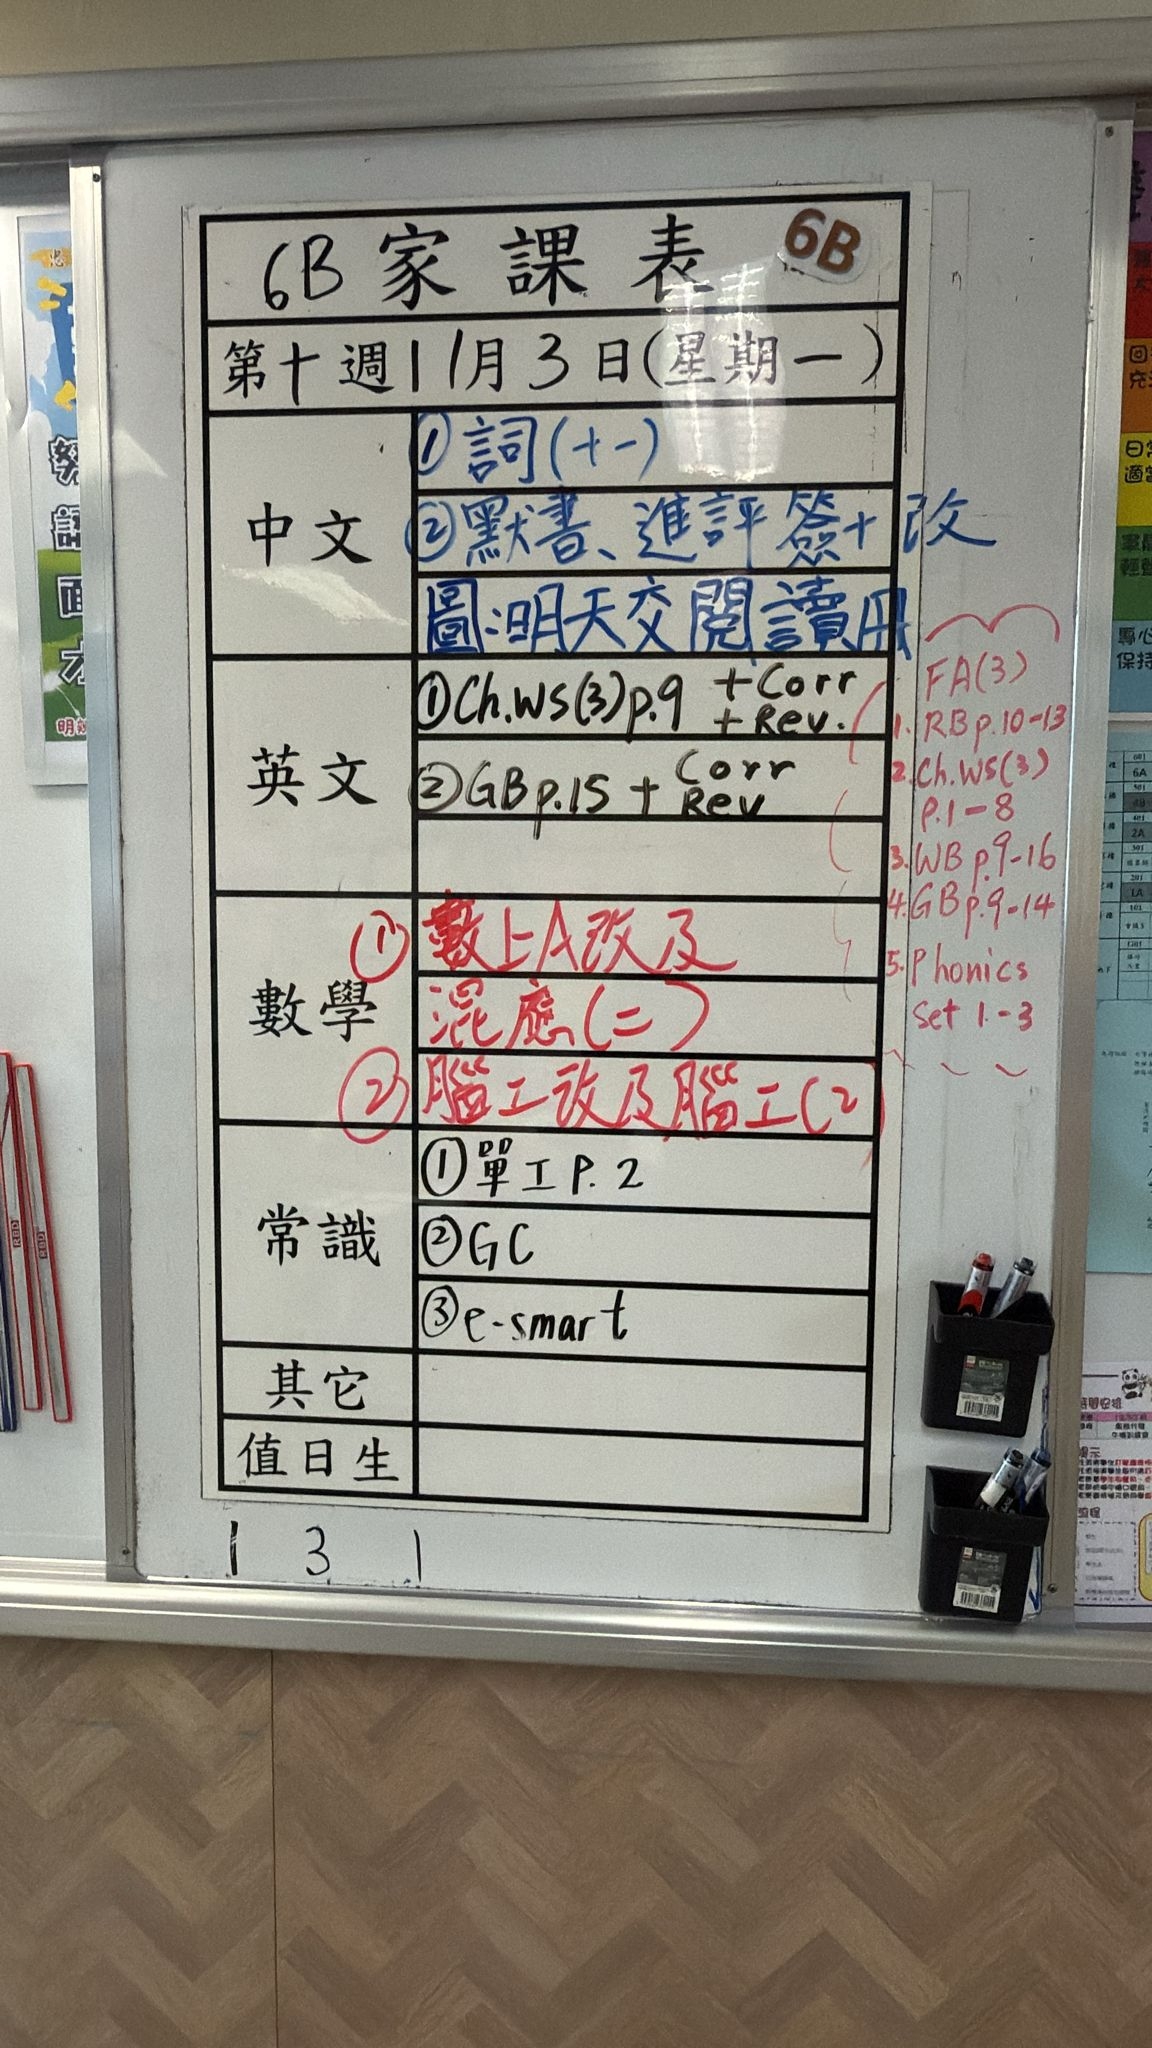 6B家課表
6B
第十週11月3日(星期一)
中文
①詞(十一)
②默書、進評簽+改
圖:明天交閱讀冊
英文
①Ch.WS(3)p.9 +Corr
+Rev.
②GBp.15 + Corr
Rev
數學
①數上A改及
混應(二)
②腦工改及腦工(2)
常識
①單工P.2
②GC
③e-smart
其它
值日生
1 3 1
FA(3)
1. RBp.10-13
2. Ch.WS(3)
p.1-8
3. WBp.9-16
4. GBp.9-14
5. Phonics
set 1-3
6A
2A
1A
RBD
RBD